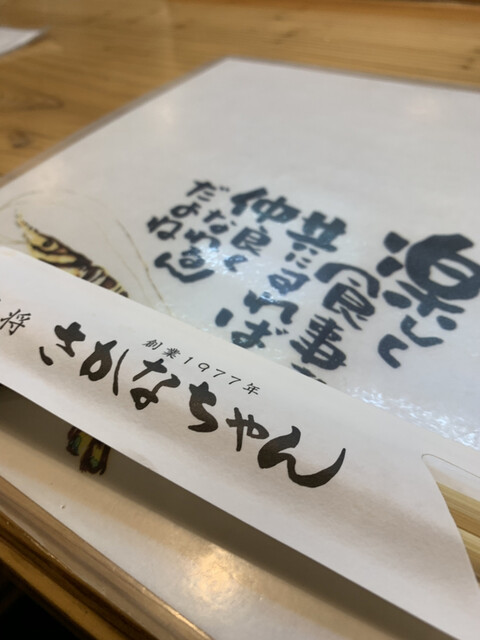 楽しく
食事を
共にすれば
仲良く
なれるん
だよね
将
創業1977年
さかなちゃん